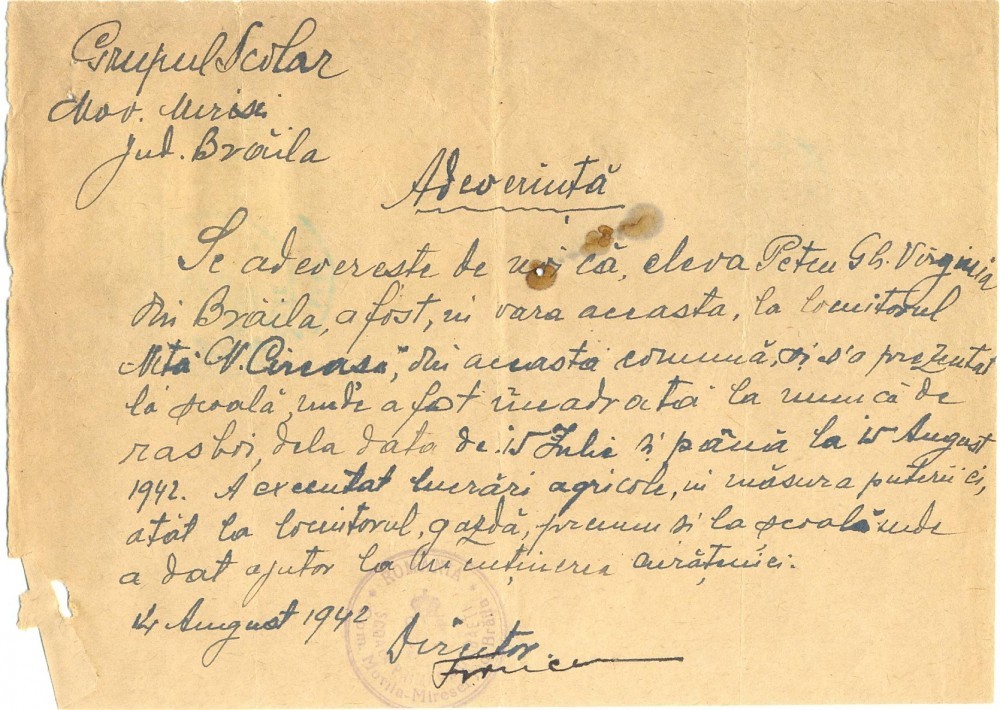 Grupul Scolar
Mov. Miresii
Jud. Brăila
Adeverință
Se adevereste de noi că, eleva Petcu Gh. Virginia
din Brăila, a fost, in vara aceasta, la locuitorul
Mta V. Circasi", din această comună, și s'a prezentat
la școală, unde a fost încadrată la muncă de
rasboi, dela data de 15 Iulie și până la 15 August
1942. A executat lucrări agricole, in măsura puterii ei,
atât la locuitorul, gazdă, precum si la școală unde
a dat ajutor la întținerea curățeniei.
14 August 1942
Director
ROMÂNIA
Com. Movila-Miresei Brăila